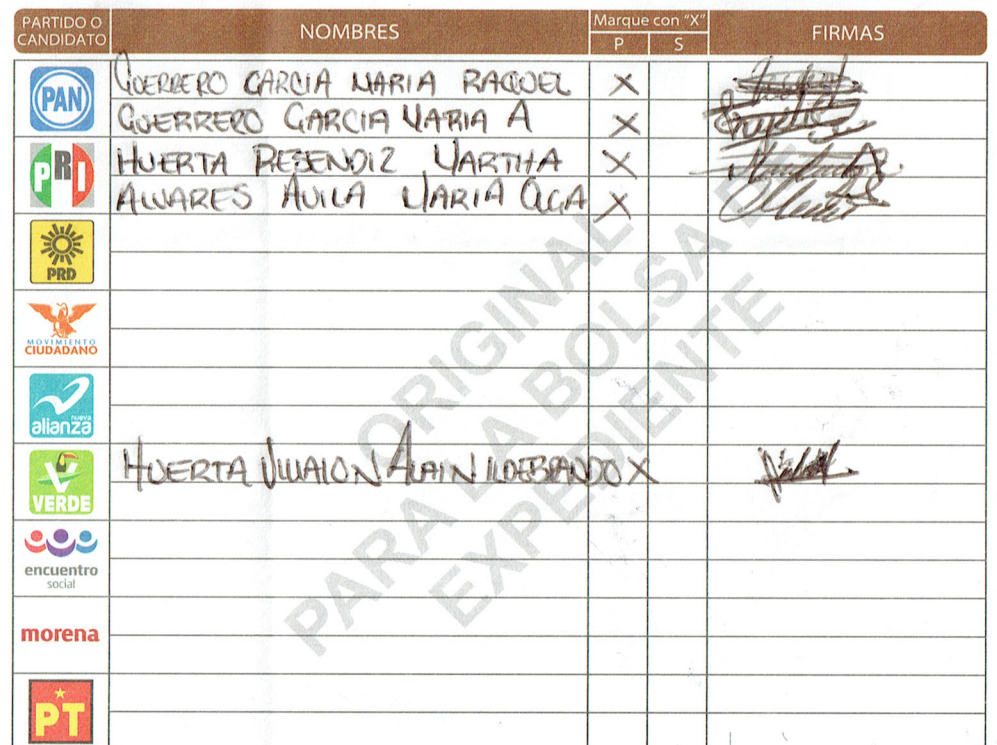 PARTIDO O CANDIDATO NOMBRES Marque con "X" P S FIRMAS
PAN GUERRERO GARCIA MARIA RAQUEL X
GUERRERO GARCIA MARIA A X
PRI HUERTA RESENDIZ MARTHA X
ALVARES AVILA MARIA OLGA X
PRD
MOVIMIENTO CIUDADANO
nueva alianza
VERDE HUERTA VILLALON ALAIN ILDEBRANDO X
encuentro social
morena
PT
ORIGINAL
PARA LA BOLSA DE
EXPEDIENTE